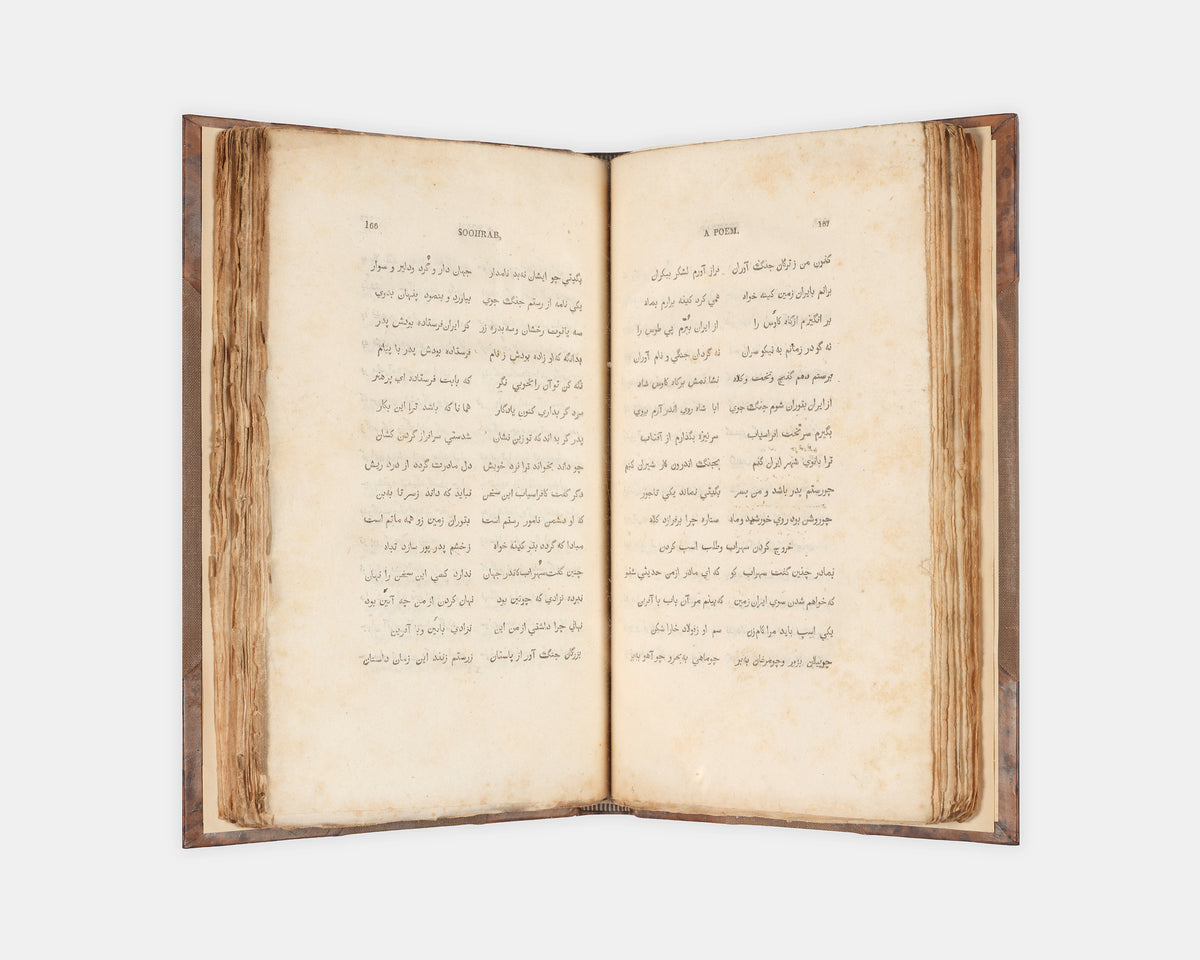 166 SOOHRAB,
بگیتي چو ایشان نه بد نامدار جهان دار و گرد و دلیر و سوار
یکي نامه از رستم جنگ جوي بیاورد و بنمود پنهان بدوي
سه یاقوت رخشان وسه بدره زر کز ایران فرستاده بودش پدر
بدانگه که او زاده بودش زمام فرستاده بودش پدر با پیام
نگه کن تو آن را بخوبي نگر که بابت فرستاده اي پرهنر
سزد گر بداري کنون یادگار همانا که باشد ترا این بکار
پدر گر بداند که تو زین نشان شدستي سرافراز گردن کشان
چو داند بخواند ترا نزد خویش دل مادرت گردد از درد ریش
دگر گفت کافراسیاب این سخن نباید که داند زسر تا به بن
که او دشمن نامور رستم است بتوران زمین زو همه ماتم است
مبادا که گردد بتو کینه خواه زخشم پدر پور سازد تباه
چنین گفت سهراب کاندر جهان ندارد کسي این سخن را نهان
نبرده نژادي که چونین بود نهان کردن از من چه آئین بود
نهاني چرا داشتي از من این نژادي بآئین و با آفرین
بزرگان جنگ آور از باستان زرستم زنند این زمان داستان
A POEM. 167
کنون من ز ترکان جنگ آوران فراز آورم لشکر بیکران
برانم بایران زمین کینه خواه همي گرد کینه برارم بماه
بر انگیزم از گاه کاوس را از ایران ببرم پي طوس را
نه گودرز مانم نه نیکو سران نه گردان جنگي و نام آوران
برستم دهم گنج و تخت و کلاه نشانمش بر گاه کاوس شاه
از ایران بتوران شوم جنگ جوي ابا شاه روي اندر آرم بروي
بگیرم سر تخت افراسیاب سر نیزه بگذارم از آفتاب
ترا بانوي شهر ایران کنم بجنگ اندرون کار شیران کنم
چو رستم پدر باشد و من پسر بگیتي نماند یکي تاجور
چو روشن بود روي خورشید و ماه ستاره چرا برفرازد کلاه
خروج کردن سهراب وطلب اسب کردن
بمادر چنین گفت سهراب کو که اي مادر از من حدیثي شنو
که خواهم شدن سوي ایران زمین که بینم مر آن باب با آفرین
یکي اسب باید مرا گام زن سم او ز پولاد خارا شکن
چو پیلان بزور و چو مرغان به پر چو ماهي به بحر و چو آهو به بر